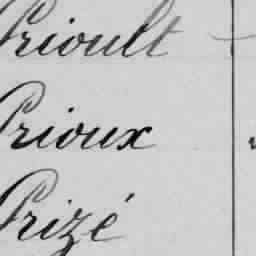 Prioult
Prioux
Prizé